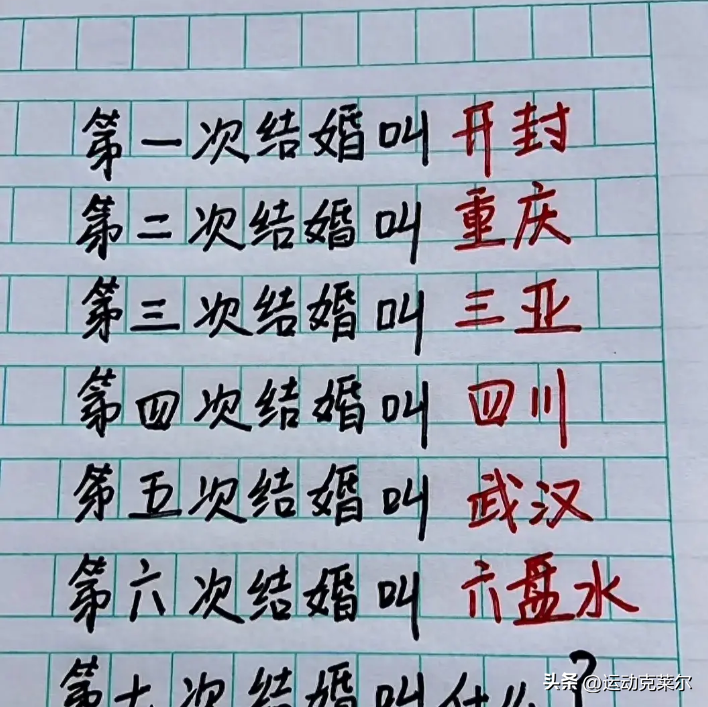 第一次结婚叫 开封
第二次结婚叫 重庆
第三次结婚叫 三亚
第四次结婚叫 四川
第五次结婚叫 武汉
第六次结婚叫 六盘水
第七次结婚叫什么?
头条 @运动克莱尔